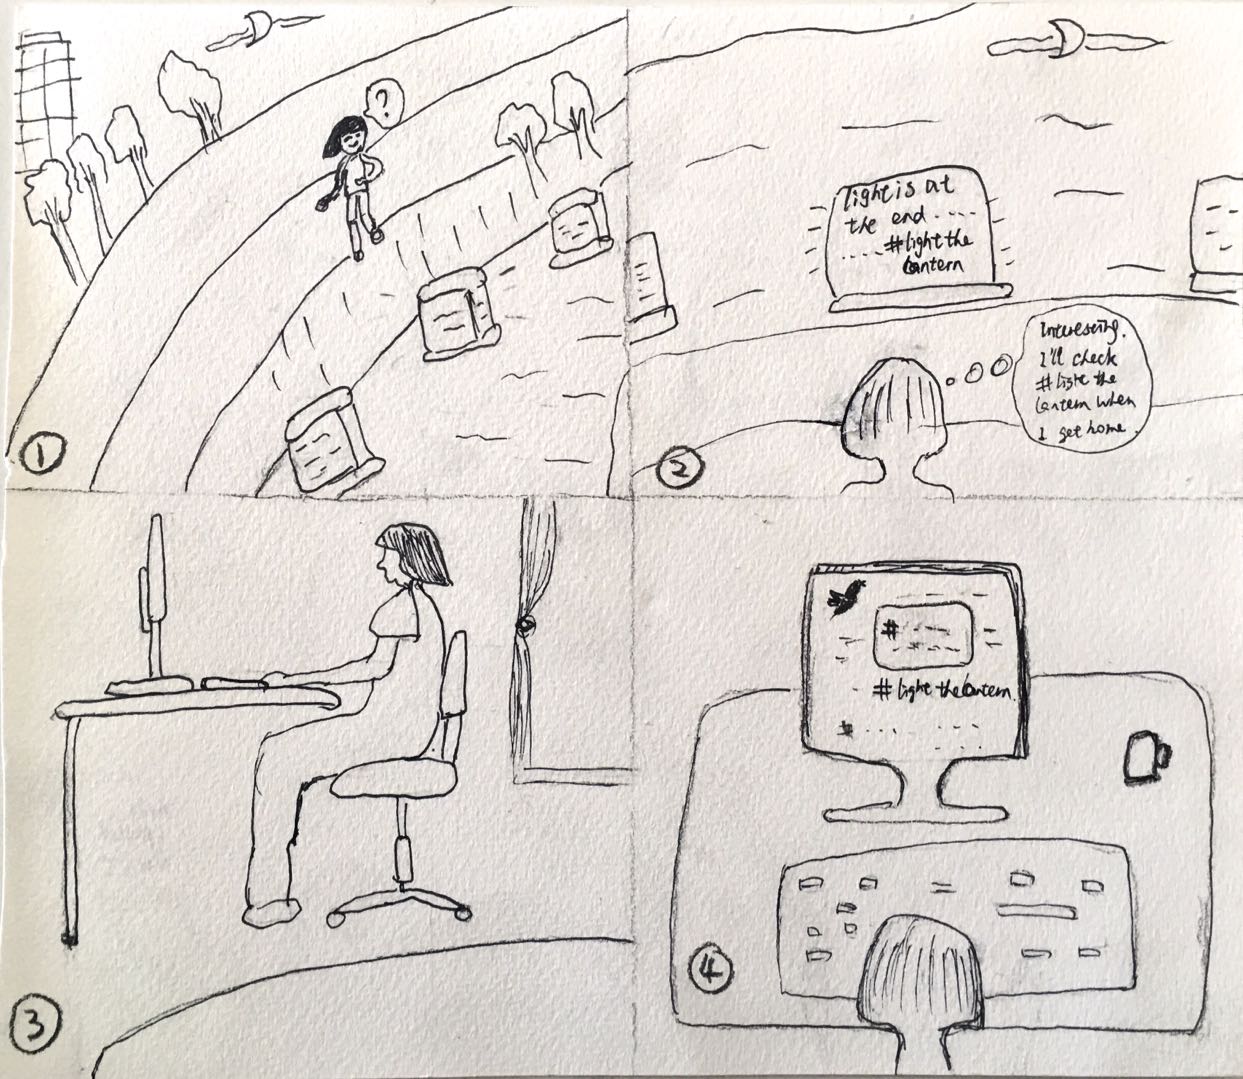 ?
1
light is at
the end ....
..... #light the
lantern
Interesting.
I'll check
#light the
lantern when
I get home.
2
3
#
#light the lantern.
4